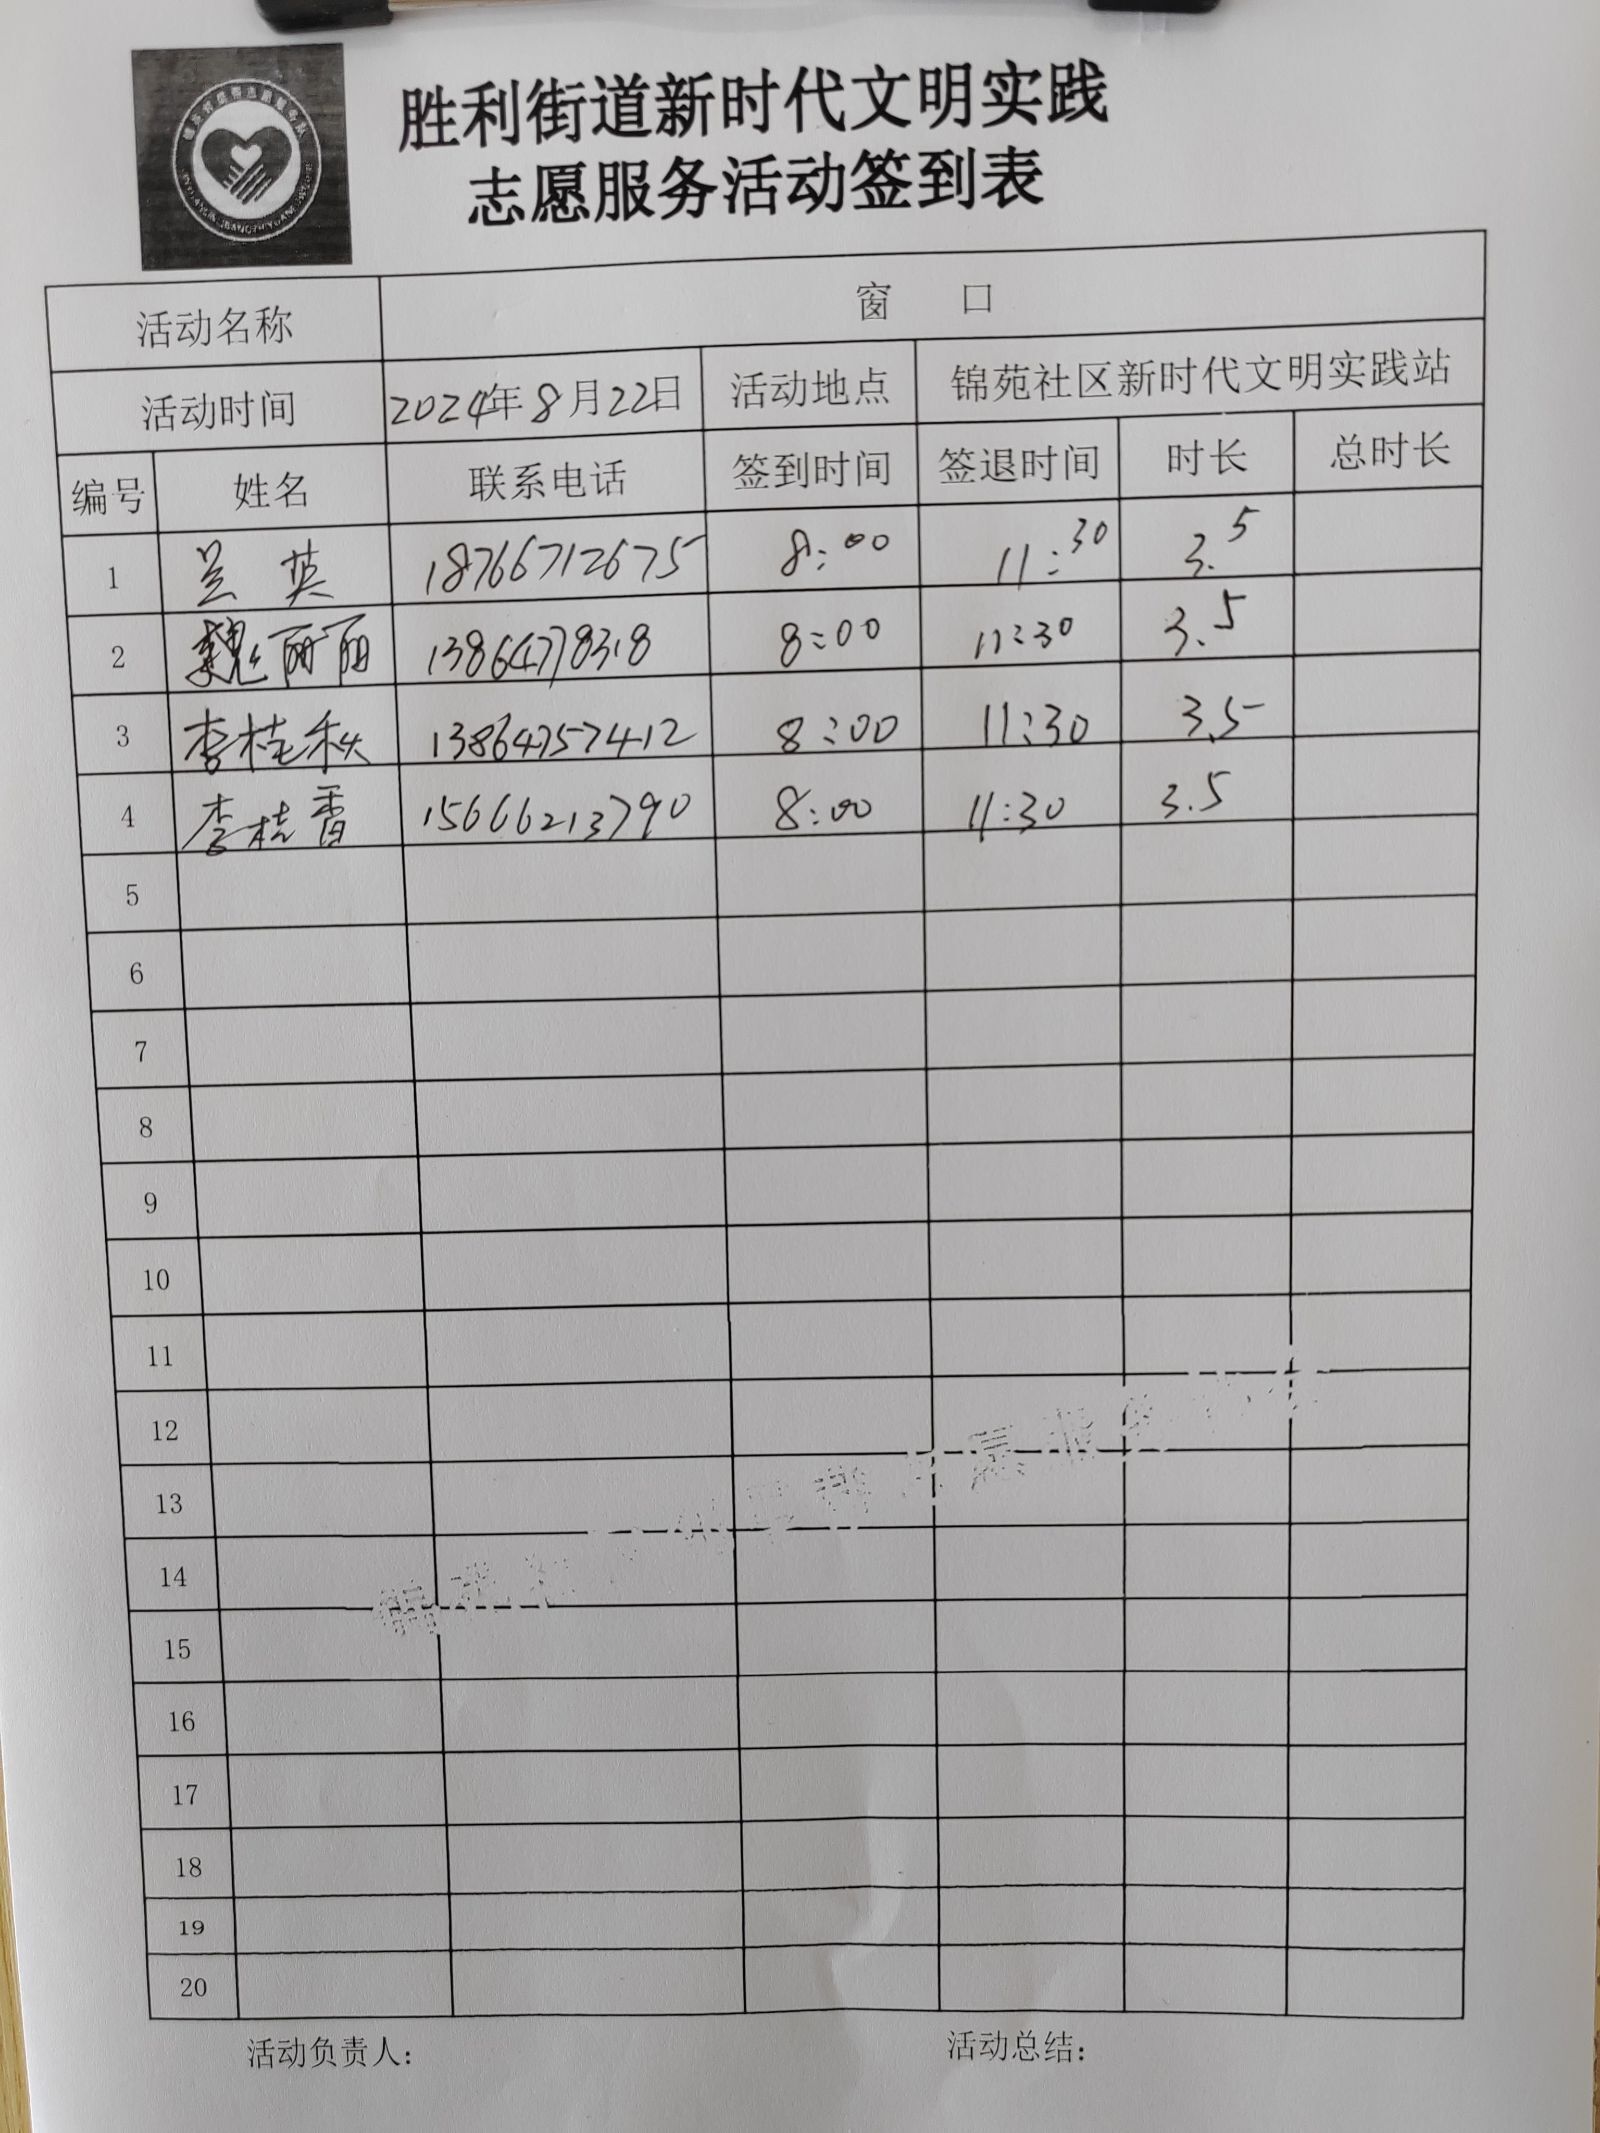 胜利街道新时代文明实践
志愿服务活动签到表
活动名称 窗 口
活动时间 2024年8月22日 活动地点 锦苑社区新时代文明实践站
编号 姓名 联系电话 签到时间 签退时间 时长 总时长
1 吴 英 18766712675 8:00 11:30 3.5
2 魏丽丽 13864778318 8:00 11:30 3.5
3 李桂秋 13864757412 8:00 11:30 3.5
4 李桂香 15666213790 8:00 11:30 3.5
5
6
7
8
9
10
11
12
13
14
15
16
17
18
19
20
活动负责人: 活动总结: